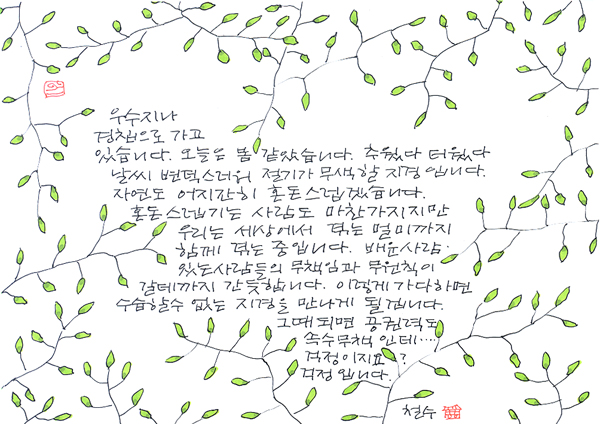 우수지나
경칩으로 가고
있습니다. 오늘은 봄 같았습니다. 추웠다 더웠다
날씨 변덕스러워 절기가 무색할 지경입니다.
자연도 어지간히 혼돈스럽겠습니다.
혼돈스럽기는 사람도 마찬가지지만
우리는 세상에서 겪는 멀미까지
함께 겪는 중입니다. 배운사람·
있는사람들의 무책임과 무원칙이
갈데까지 간듯합니다. 이렇게 가다하면
수습할수 없는 지경을 만나게 될겁니다.
그때되면 공권력도
속수무책 인데····
걱정이지요?
걱정입니다.
철수